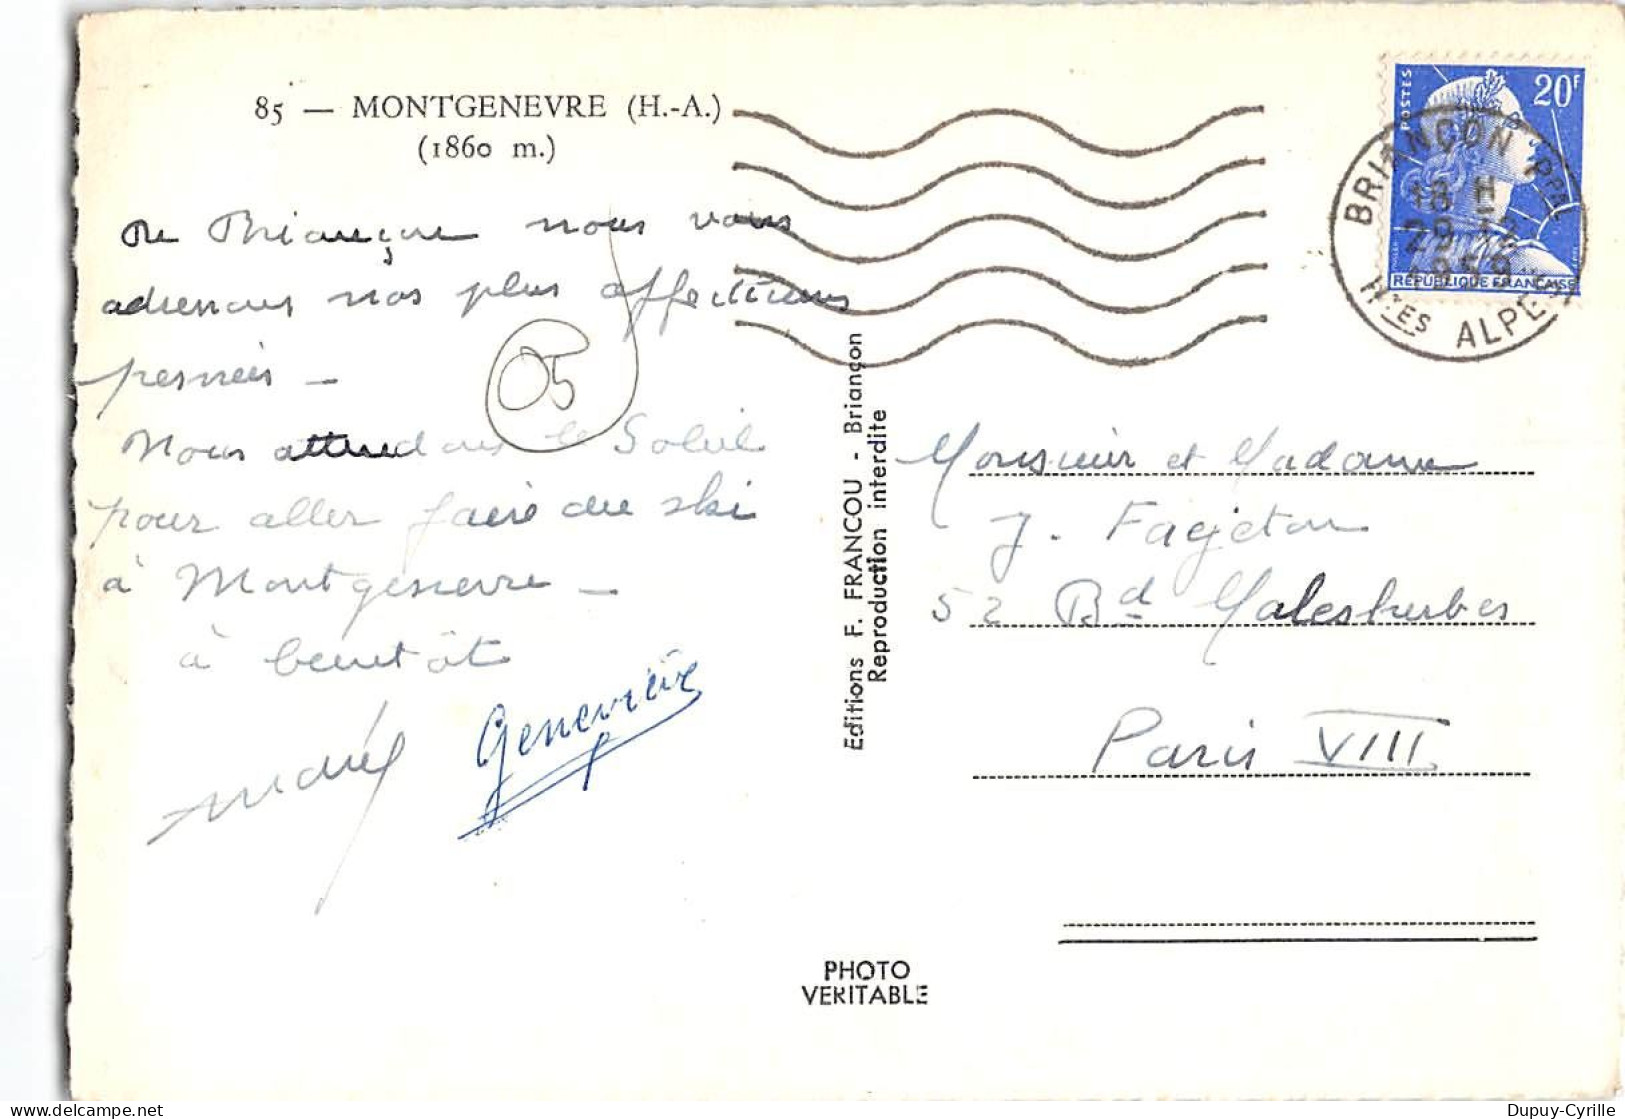 85 — MONTGENEVRE (H.-A.)
(1860 m.)
De Briançon nous vous
adressons nos plus affectueuses
pensées –
Nous attendons le Soleil
pour aller faire du ski
à Montgenevre –
à bientôt
Geneviève
05
Editions F. FRANCOU - Briançon
Reproduction interdite
PHOTO
VERITABLE
POSTES
20F
REPUBLIQUE FRANÇAISE
BRIANÇON PPAL
18 H
29-12
1959
HTES ALPES
Monsieur et Madame
J. Fageton
52 Bd Malesherbes
Paris VIII
Dupuy-Cyrille